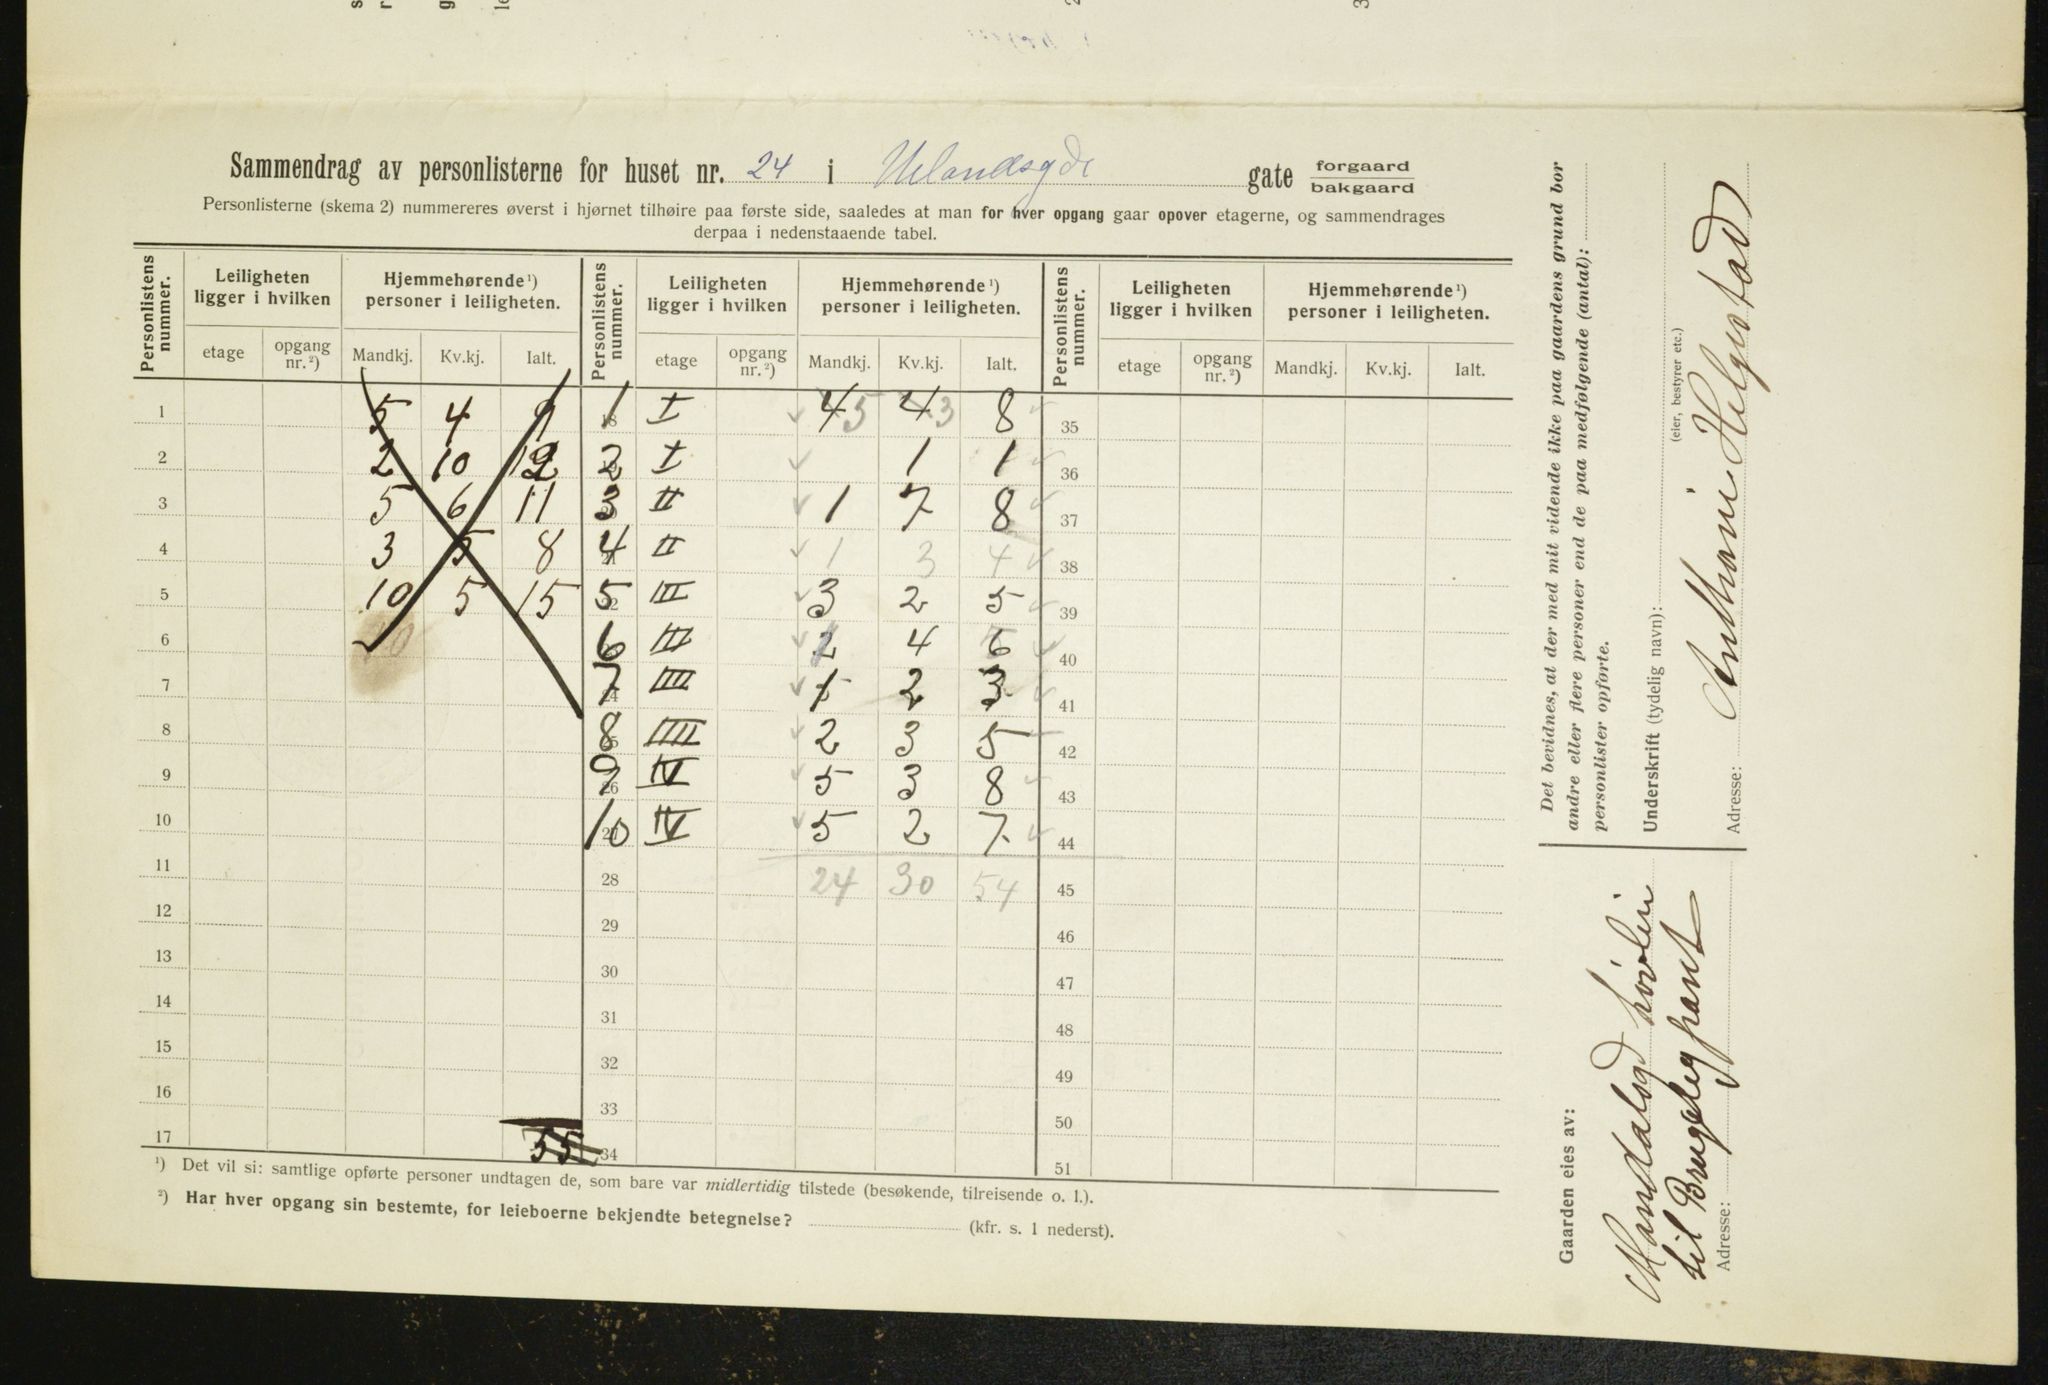 Sammendrag av personlisterne for huset nr. 24 i Uelandsgdr gate forgaard
bakgaard
Personlisterne (skema 2) nummereres øverst i hjørnet tilhøire paa første side, saaledes at man for hver opgang gaar opover etagerne, og sammendrages
derpaa i nedenstaaende tabel.
Personlistens nummer. Leiligheten ligger i hvilken Hjemmehørende ¹) personer i leiligheten. Personlistens nummer. Leiligheten ligger i hvilken Hjemmehørende ¹) personer i leiligheten. Personlistens nummer. Leiligheten ligger i hvilken Hjemmehørende ¹) personer i leiligheten.
etage opgang nr. ²) Mandkj. Kv.kj. Ialt. etage opgang nr. ²) Mandkj. Kv.kj. Ialt. etage opgang nr. ²) Mandkj. Kv.kj. Ialt.
1 5 4 9 1 I 4 5 4 3 8 35
2 2 10 12 2 I 1 1 36
3 5 6 11 3 II 1 7 8 37
4 3 5 8 4 II 1 3 4 38
5 10 5 15 5 III 3 2 5 39
6 6 III 2 4 6 40
7 7 IIII 1 2 3 41
8 8 IIII 2 3 5 42
9 9 IV 5 3 8 43
10 10 IV 5 2 7 44
11 28 24 30 54 45
12 29 46
13 30 47
14 31 48
15 32 49
16 33 50
17 55 34 51
¹) Det vil si: samtlige opførte personer undtagen de, som bare var midlertidig tilstede (besøkende, tilreisende o. l.).
²) Har hver opgang sin bestemte, for leieboerne bekjendte betegnelse? (kfr. s. 1 nederst).
Det bevidnes, at der med mit vidende ikke paa gaardens grund bor
andre eller flere personer end de paa medfølgende (antal):
personlister opførte.
Underskrift (tydelig navn):
(eier, bestyrer etc.)
Anthoni Helgestad
Adresse:
Gaarden eies av:
Mandalsgd
til Brugeligpant
Adresse: